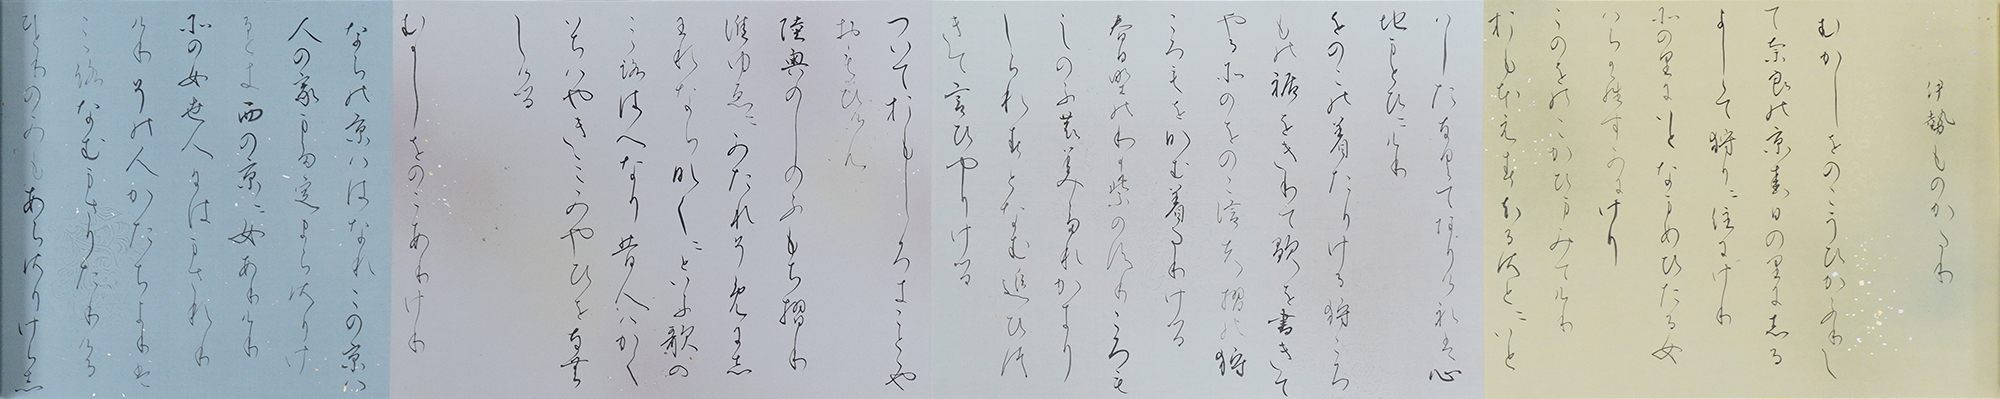 伊勢ものかたり
むかしをのこうひかうふりし
て奈良の京春日の里にしる
よしして狩りに往にけり
その里にいとなまめひたる女
はらから住みにけり
このをのこかひまみてけり
おもほえすふるさとにいと
はしたなくてありけれは心
地まとひにけり
をのこの着たりける狩ころ
もの裾をきりて歌を書きて
やるそのをのこ信夫摺の狩
ころもをなむ着たりける
春日野のわか紫のすりころも
しのふの美たれかきり
しられすとなむ追ひつ
きて言ひやりける
ついておもしろきことや
おもひけん
陸奥のしのふもち摺り
誰ゆゑにみたれそめにし
われならなくにといふ歌の
こころはへなり昔人はかく
いちはやきみやひをなむ
しける
むかしをのこありけり
ならの京ははなれこの京は
人の家また定まらさりけ
るとき西の京に女ありけり
その女世人にはまされり
けりその人かたちよりは
こころなむまさりたりける
ひとりのみもあらさりけらし